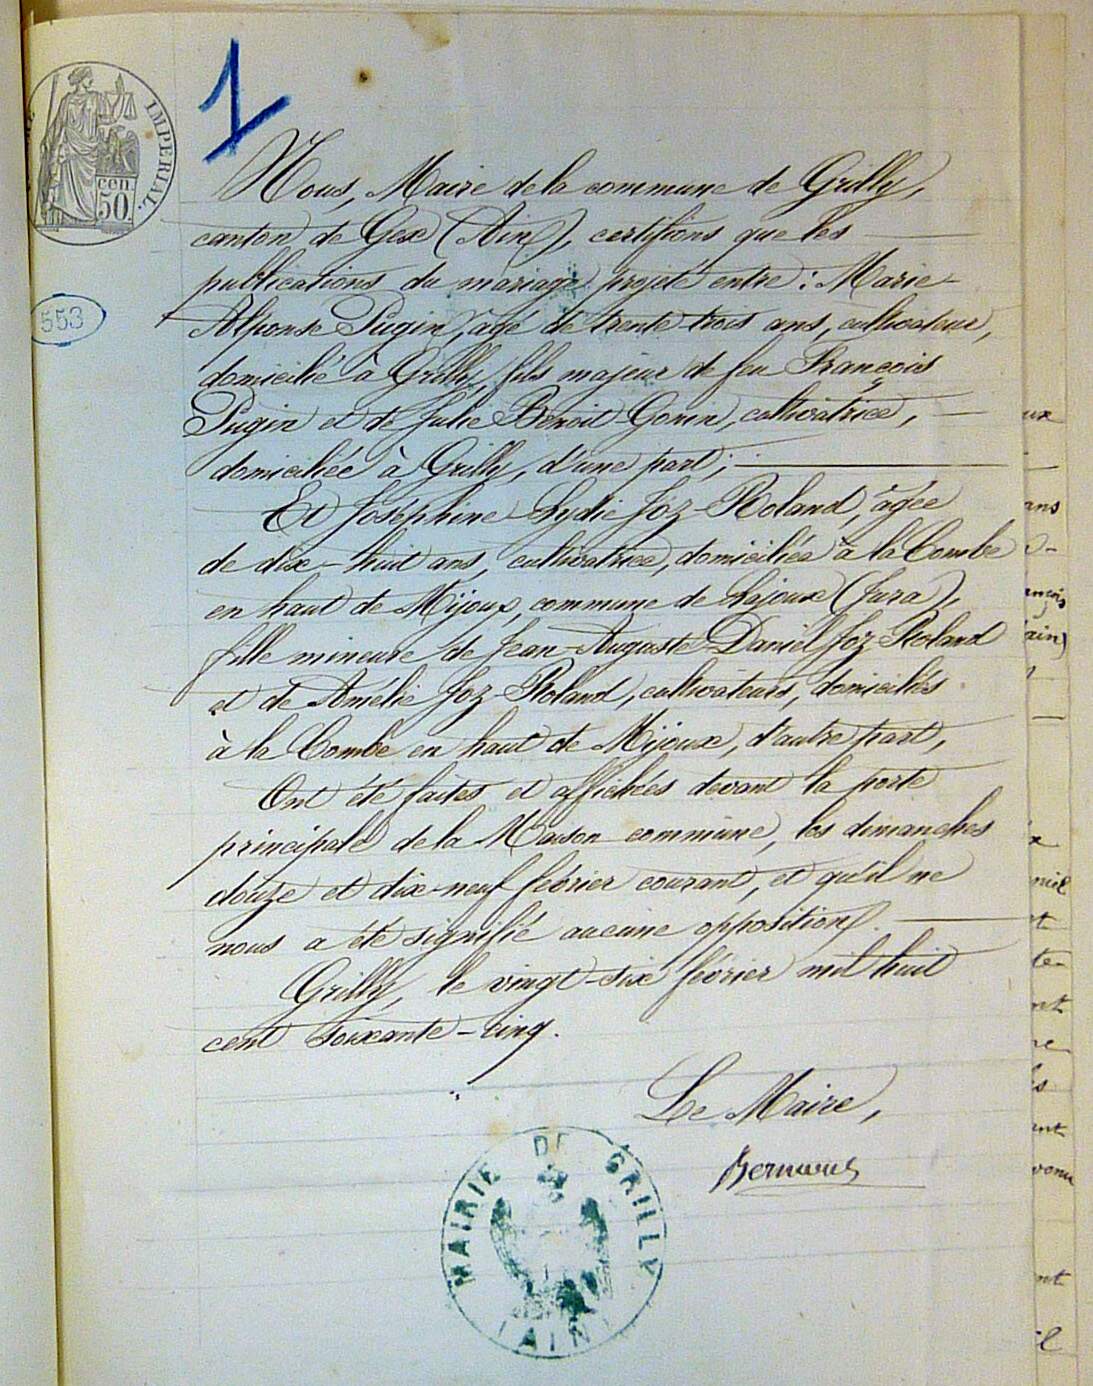 1
IMPERIAL.
cen
50.
553
Nous, Maire de la commune de Grilly,
canton de Gex (Ain), certifions que les
publications du mariage projeté entre : Marie-
Alphonse Pugin, âgé de trente trois ans, cultivateur,
domicilié à Grilly, fils majeur de feu François
Pugin et de Julie Benoit-Gonin, cultivatrice,
domiciliée à Grilly, d'une part ;
Et Joséphine-Lydie Joz-Roland, âgée
de dix-huit ans, cultivatrice, domiciliée à la Combe
en haut de Mijoux, commune de Lajoux (Jura),
fille mineure de Jean-Auguste-Daniel Joz Roland
et de Amélie Joz-Roland, cultivateurs, domiciliés
à la Combe en haut de Mijoux, d'autre part,
Ont été faites et affichées devant la porte
principale de la Maison commune, les dimanches
douze et dix-neuf février courant, et qu'il ne
nous a été signifié aucune opposition.
Grilly, le vingt-six février mil huit
cent soixante-cinq.
Le Maire,
MAIRIE DE GRILLY
(AIN)